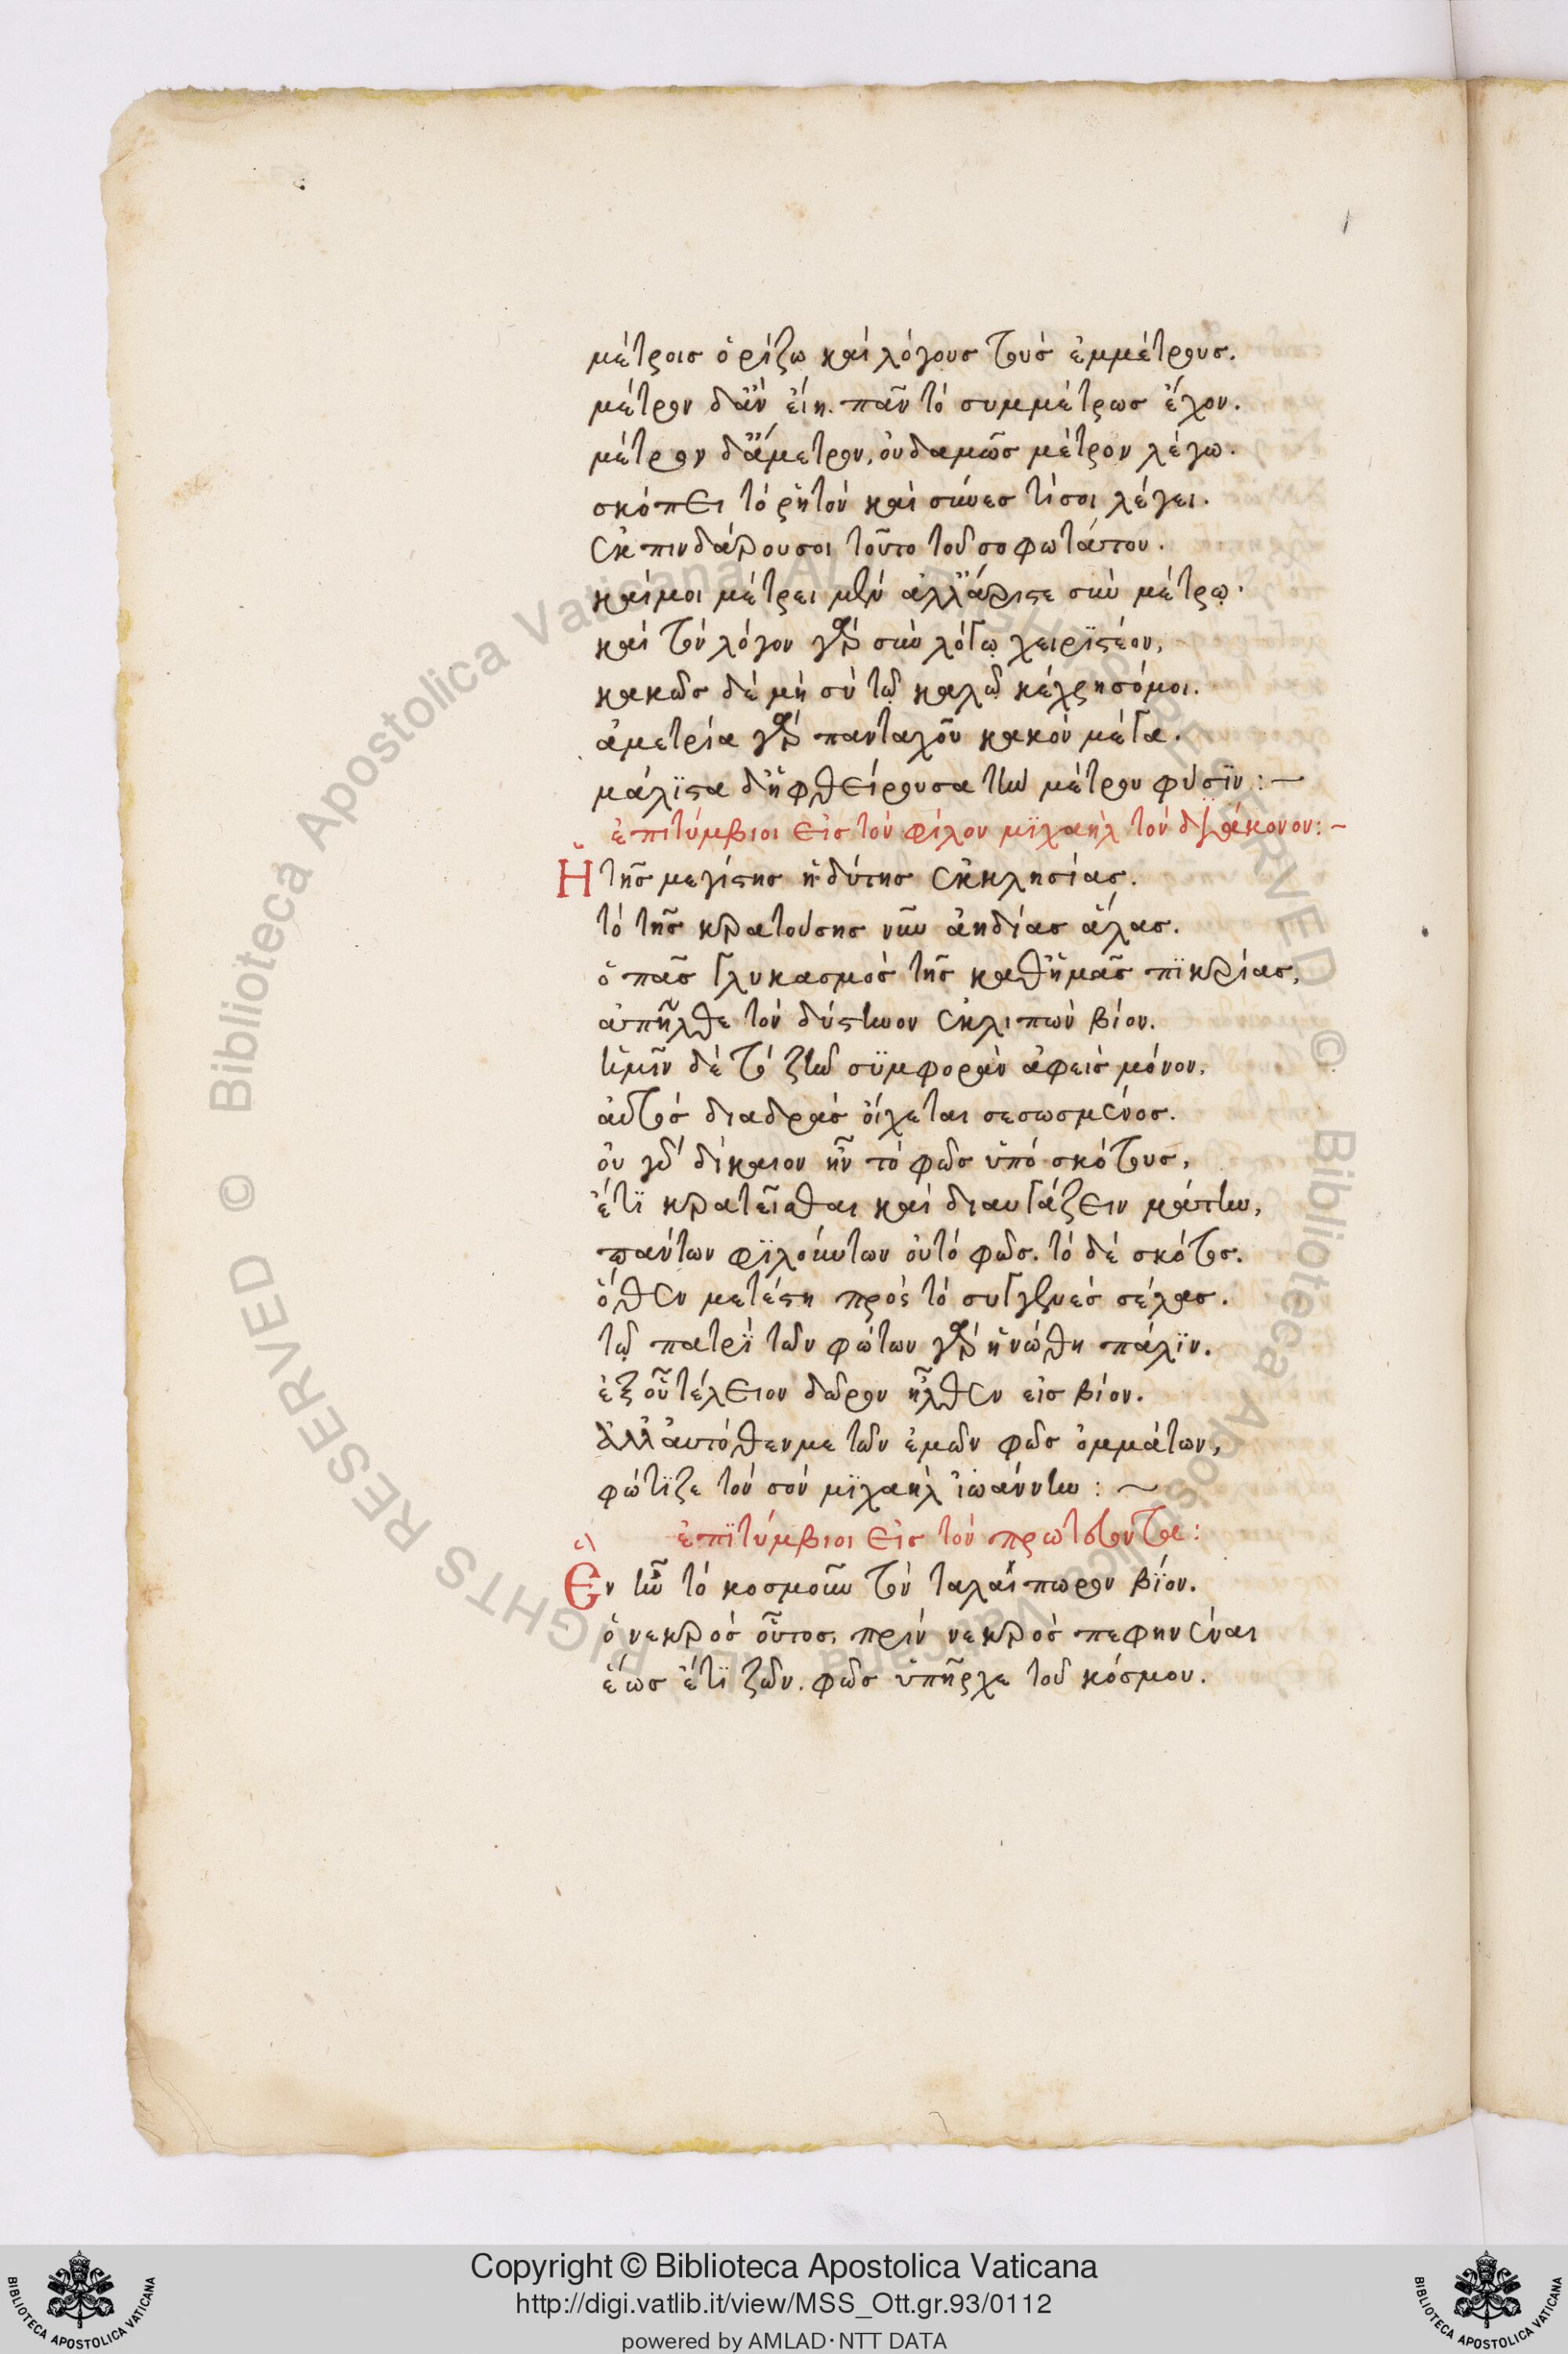 μέτροις ὁρίζω καὶ λόγους τοὺς ἐμμέτρους.
μέτρον δ' ἂν εἴη. πᾶν τὸ συμμέτρως ἔχον.
μέτρον δ' ἄμετρον, οὐδαμῶς μέτρον λέγω.
σκόπει τὸ ῥητὸν καὶ σύνες τί σοι λέγει.
ἐκ πινδάρου σοι τοῦτο τοῦ σοφωτάτου.
καί μοι μέτρει μὲν ἀλλ' ἄριστε σὺν μέτρῳ.
καὶ τὸν λόγον γὰρ σὺν λόγῳ χειριστέον,
κακῶς δὲ μὴ σὺ τῷ καλῷ κέχρησό μοι.
ἀμετρία γὰρ πανταχοῦ κακὸν μέγα.
μάλιστα δ' ἡ φθείρουσα τὴν μέτρου φύσιν: ~
ἐπιτύμβιοι εἰς τὸν φίλον μιχαὴλ τὸν διάκονον: ~
Ἡ τῆς μεγίστης ἡδύτης ἐκκλησίας.
τὸ τῆς κρατούσης νῦν ἀηδίας ἅλας.
ὁ πᾶς γλυκασμὸς τῆς καθ' ἡμᾶς πικρίας,
ἀπῆλθε τὸν δύστηνον ἐκλιπὼν βίον.
ἡμῖν δὲ τὸ ζῆν συμφορὰν ἀφεὶς μόνον,
αὐτὸς διαδρὰς οἴχεται σεσωσμένος.
οὐ γὰρ δίκαιον ἦν τὸ φῶς ὑπὸ σκότους,
ἔτι κρατεῖσθαι καὶ διαυγάζειν μάτην,
πάντων φιλούντων οὐ τὸ φῶς. τὸ δὲ σκότος.
ὅθεν μετέστη πρὸς τὸ συγγενὲς σέλας.
τῷ πατρὶ τῶν φώτων γὰρ ἡνώθη πάλιν.
ἐξ οὗ τέλειον δῶρον ἦλθεν εἰς βίον.
ἀλλ' αὐτόθεν με τῶν ἐμῶν φῶς ὀμμάτων,
φώτιζε τὸν σὸν μιχαὴλ ἰωάννην: ~
ἐπιτύμβιοι εἰς τὸν
Ἓν ἦν τὸ κοσμοῦν τὸν ταλαίπωρον βίον.
ὁ νεκρὸς οὗτος, πρὶν νεκρὸς πεφηνέναι
ἕως ἔτι ζῶν. φῶς ὑπῆρχε τοῦ κόσμου.
© Biblioteca Apostolica Vaticana ALL RIGHTS RESERVED © Biblioteca Apostolica Vaticana ALL RIGHTS RESERVED
Copyright © Biblioteca Apostolica Vaticana
http://digi.vatlib.it/view/MSS_Ott.gr.93/0112
powered by AMLAD·NTT DATA
BIBLIOTECA APOSTOLICA VATICANA
BIBLIOTECA APOSTOLICA VATICANA